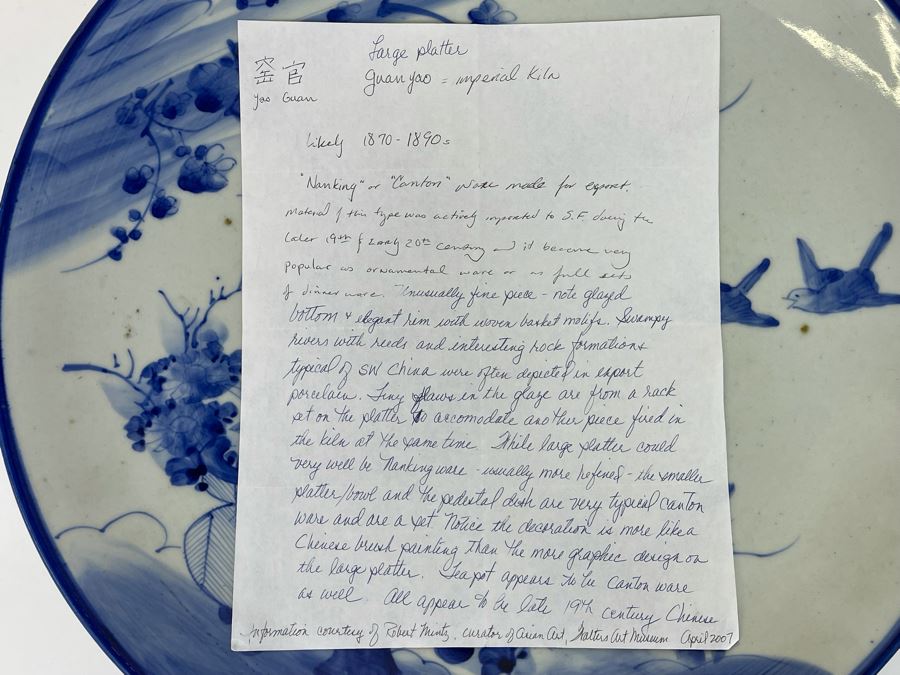 Large platter
窑 官
Yao Guan
Guanyao = imperial kiln
Likely 1870-1890s
"Nanking" or "Canton" ware made for export.
Material of this type was actively imported to S.F during the
later 19th & early 20th century and it became very
popular as ornamental ware or as full sets
of dinner ware. Unusually fine piece - note glazed
bottom & elegant rim with woven basket motifs. Swampy
rivers with reeds and interesting rock formations
typical of SW China were often depicted in export
porcelain. Tiny flaws in the glaze are from a rack
set on the platter to accomodate another piece fired in
the kiln at the same time. While large platter could
very well be Nanking ware - usually more refined - the smaller
platter/bowl and the pedestal dish are very typical Canton
ware and are a set. Notice the decoration is more like a
Chinese brush painting than the more graphic design on
the large platter. Teapot appears to be Canton ware
as well. All appear to be late 19th century Chinese
Information courtesy of Robert Mintz, curator of Asian Art, Walters Art Museum April 2007